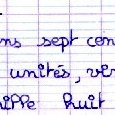 ns sept cen
unités, vi
hiffe huit